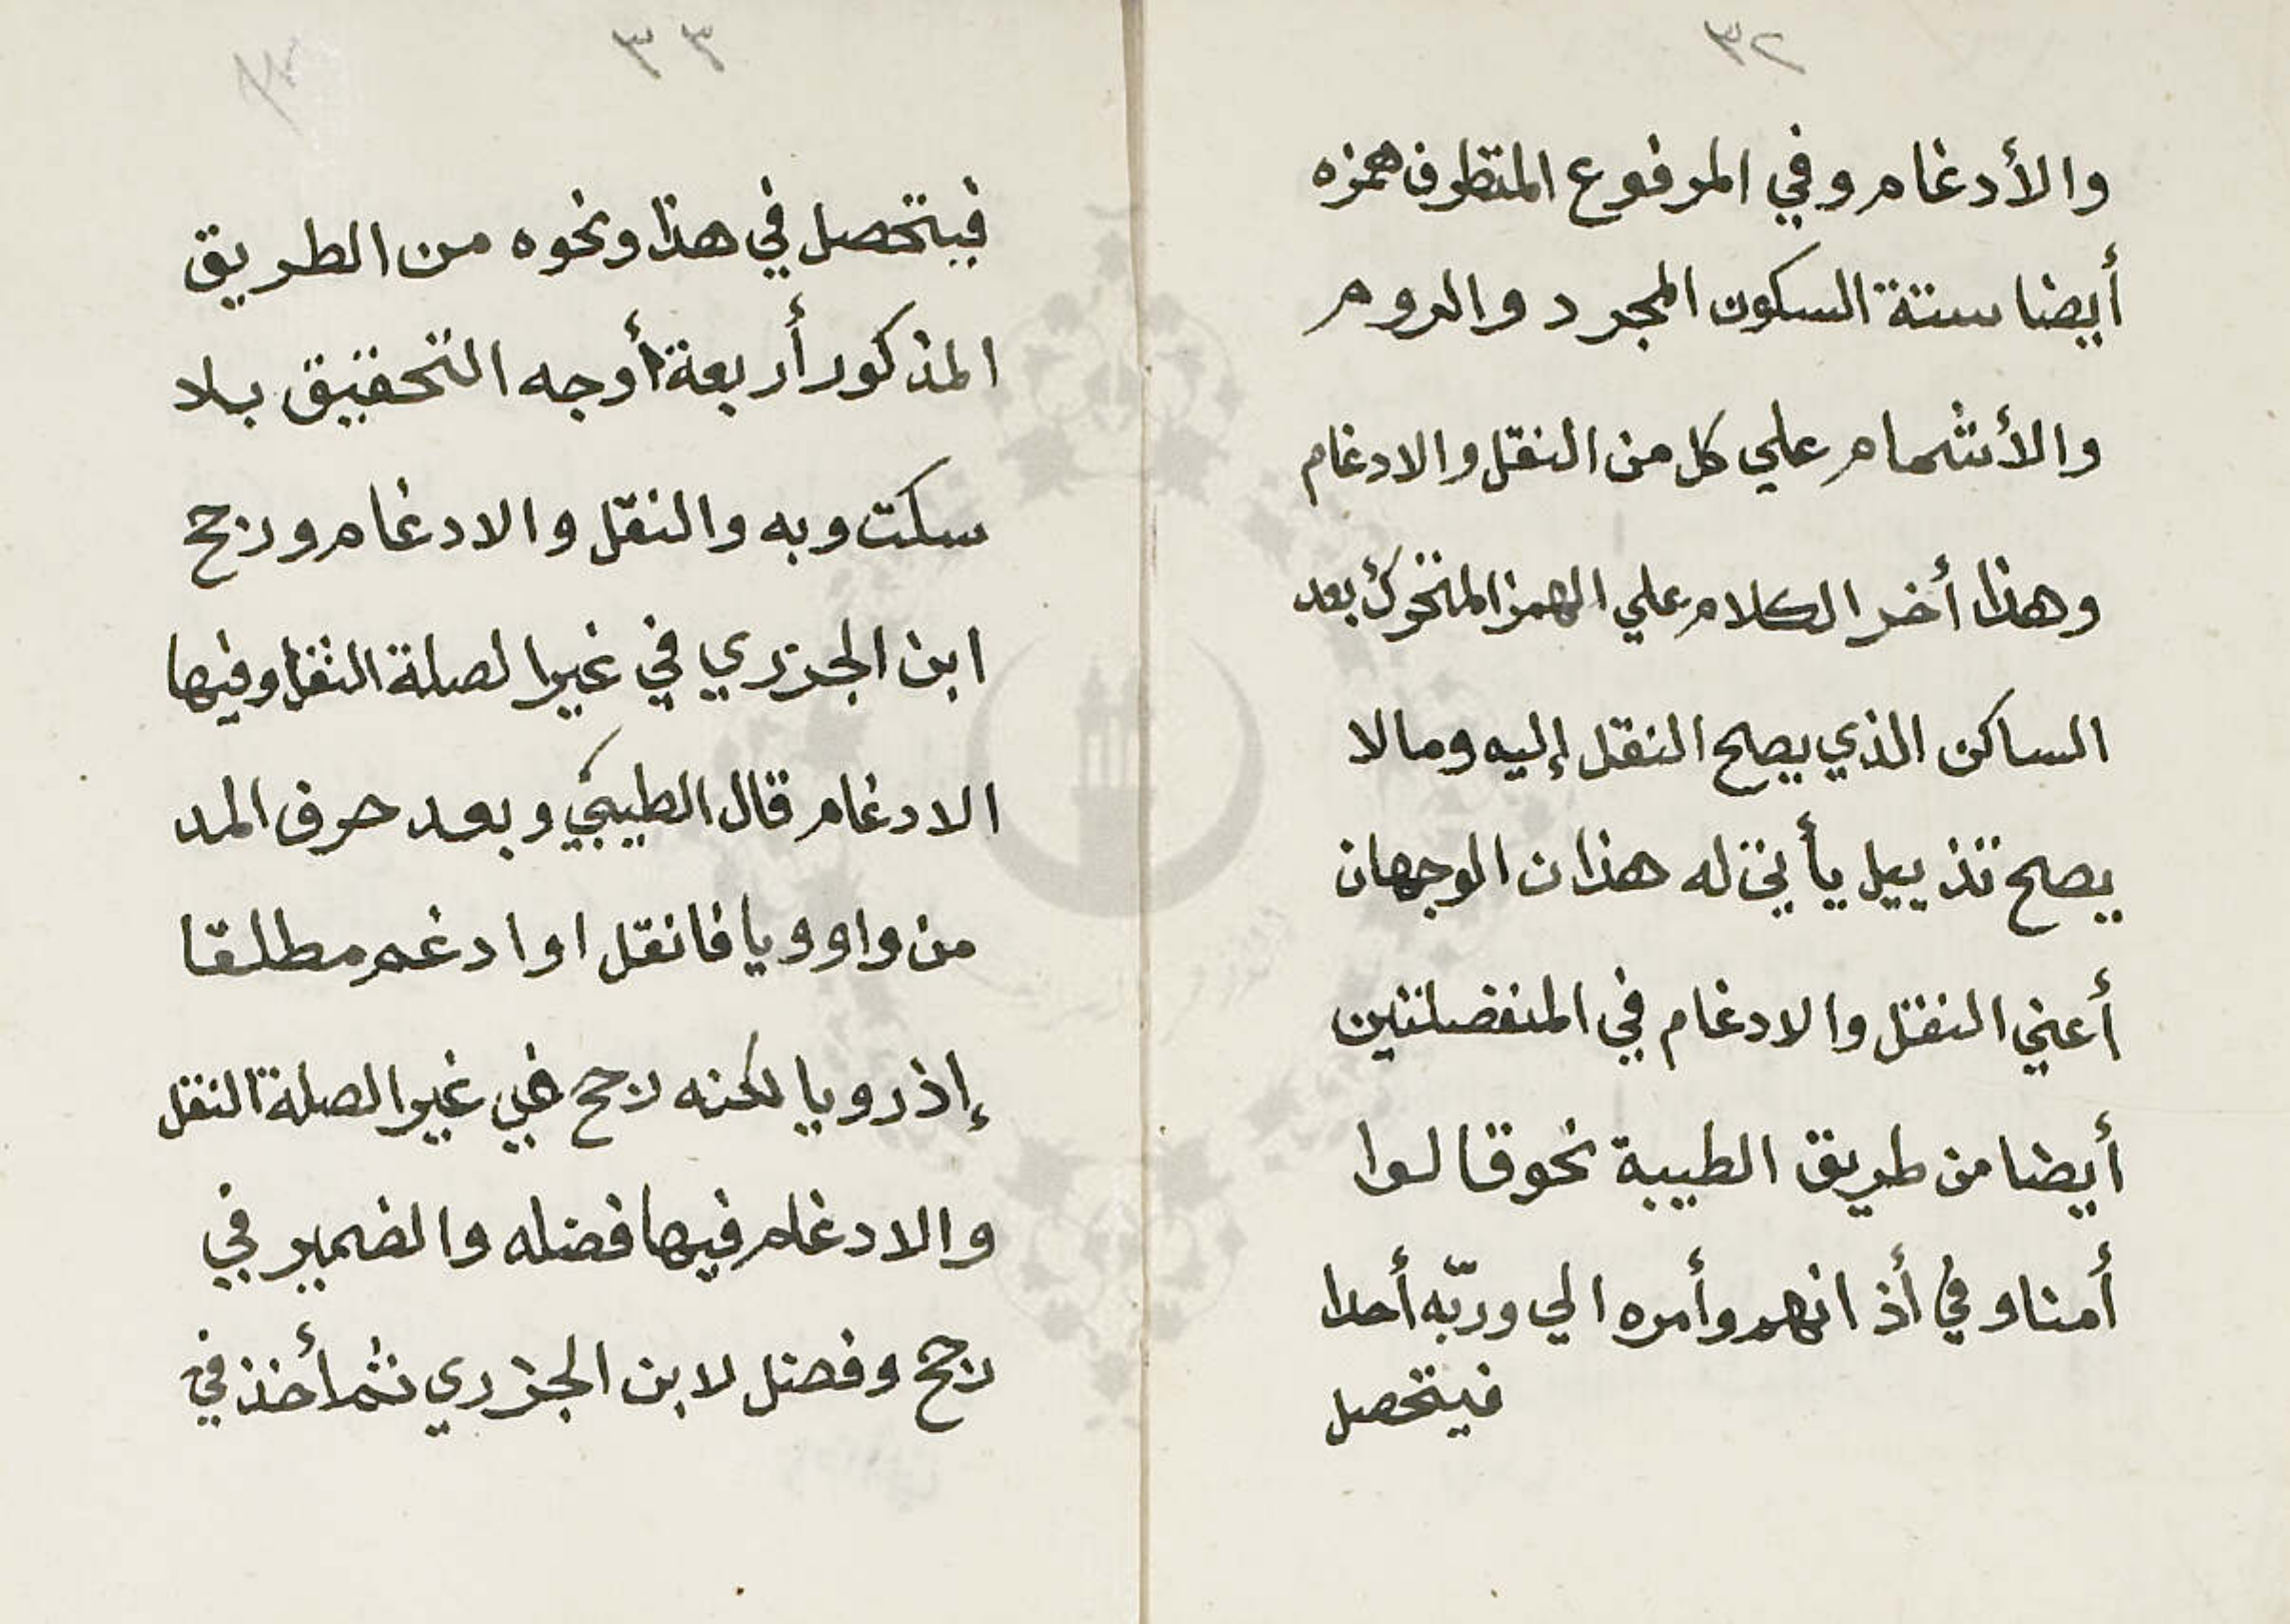 ٣٢
والأدغام وفي المرفوع المتطرف همزه
أيضا ستة السكون المجرد والروم
والأشمام علي كل من النقل والادغام
وهذا أخر الكلام علي الهمز المتحرك بعد
الساكن الذي يصلح النقل إليه ومالا
يصلح تذييل يأتي له هذان الوجهان
أعني النقل والادغام في المنفصلتين
أيضا من طريق الطيبة نحو قالوا
أمنا وفي أذانهم وأمره الي وربّه أحدا
فيتحصل
٣٣
فيتحصل في هذا ونحوه من الطريق
المذكور أربعة أوجه التحقيق بلا
سكت وبه والنقل والادغام ورجح
ابن الجزري في غير الصلة النقل وفيها
الادغام قال الطيبي وبعد حرف المد
من واو ويا فانقل او ادغم مطلقا
إذ رويا لكنه رجح في غير الصلة النقل
والادغام فيها فضله والضمير في
رجح وفضل لابن الجزري ثم أخذ في